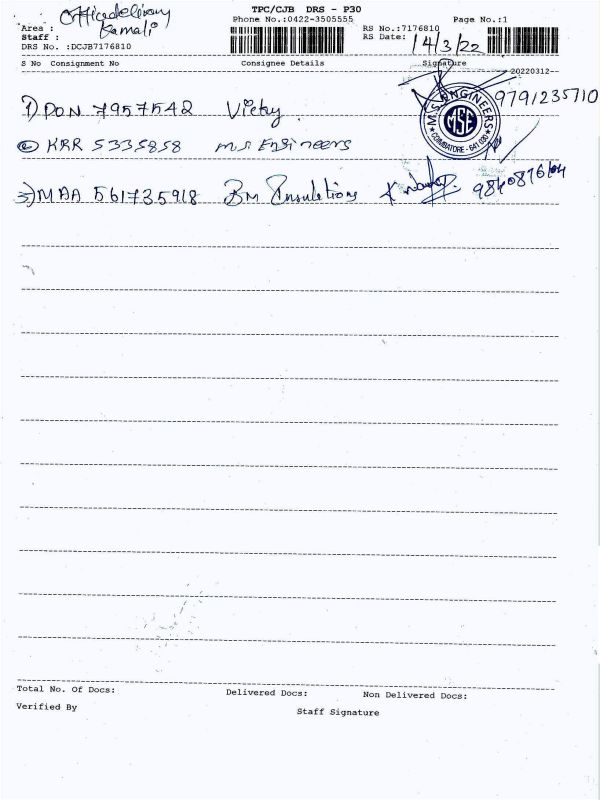 TPC/CJB DRS - P30
Officedelivery
Area :
Phone No.:0422-3505555
Page No.:1
Staff : Kamali
RS No.:7176810
DRS No. :DCJB7176810
RS Date: 14/3/22
S No Consignment No Consignee Details Signature
20220312-
1) PON 7957542 Vicky 9791235710
M.S. ENGINEERS
MSE
COIMBATORE - 641 030
2) KRR 5335858 M.S Engineers
3) MAA 561735918 BM Insulations
Total No. Of Docs: Delivered Docs: Non Delivered Docs:
Verified By Staff Signature